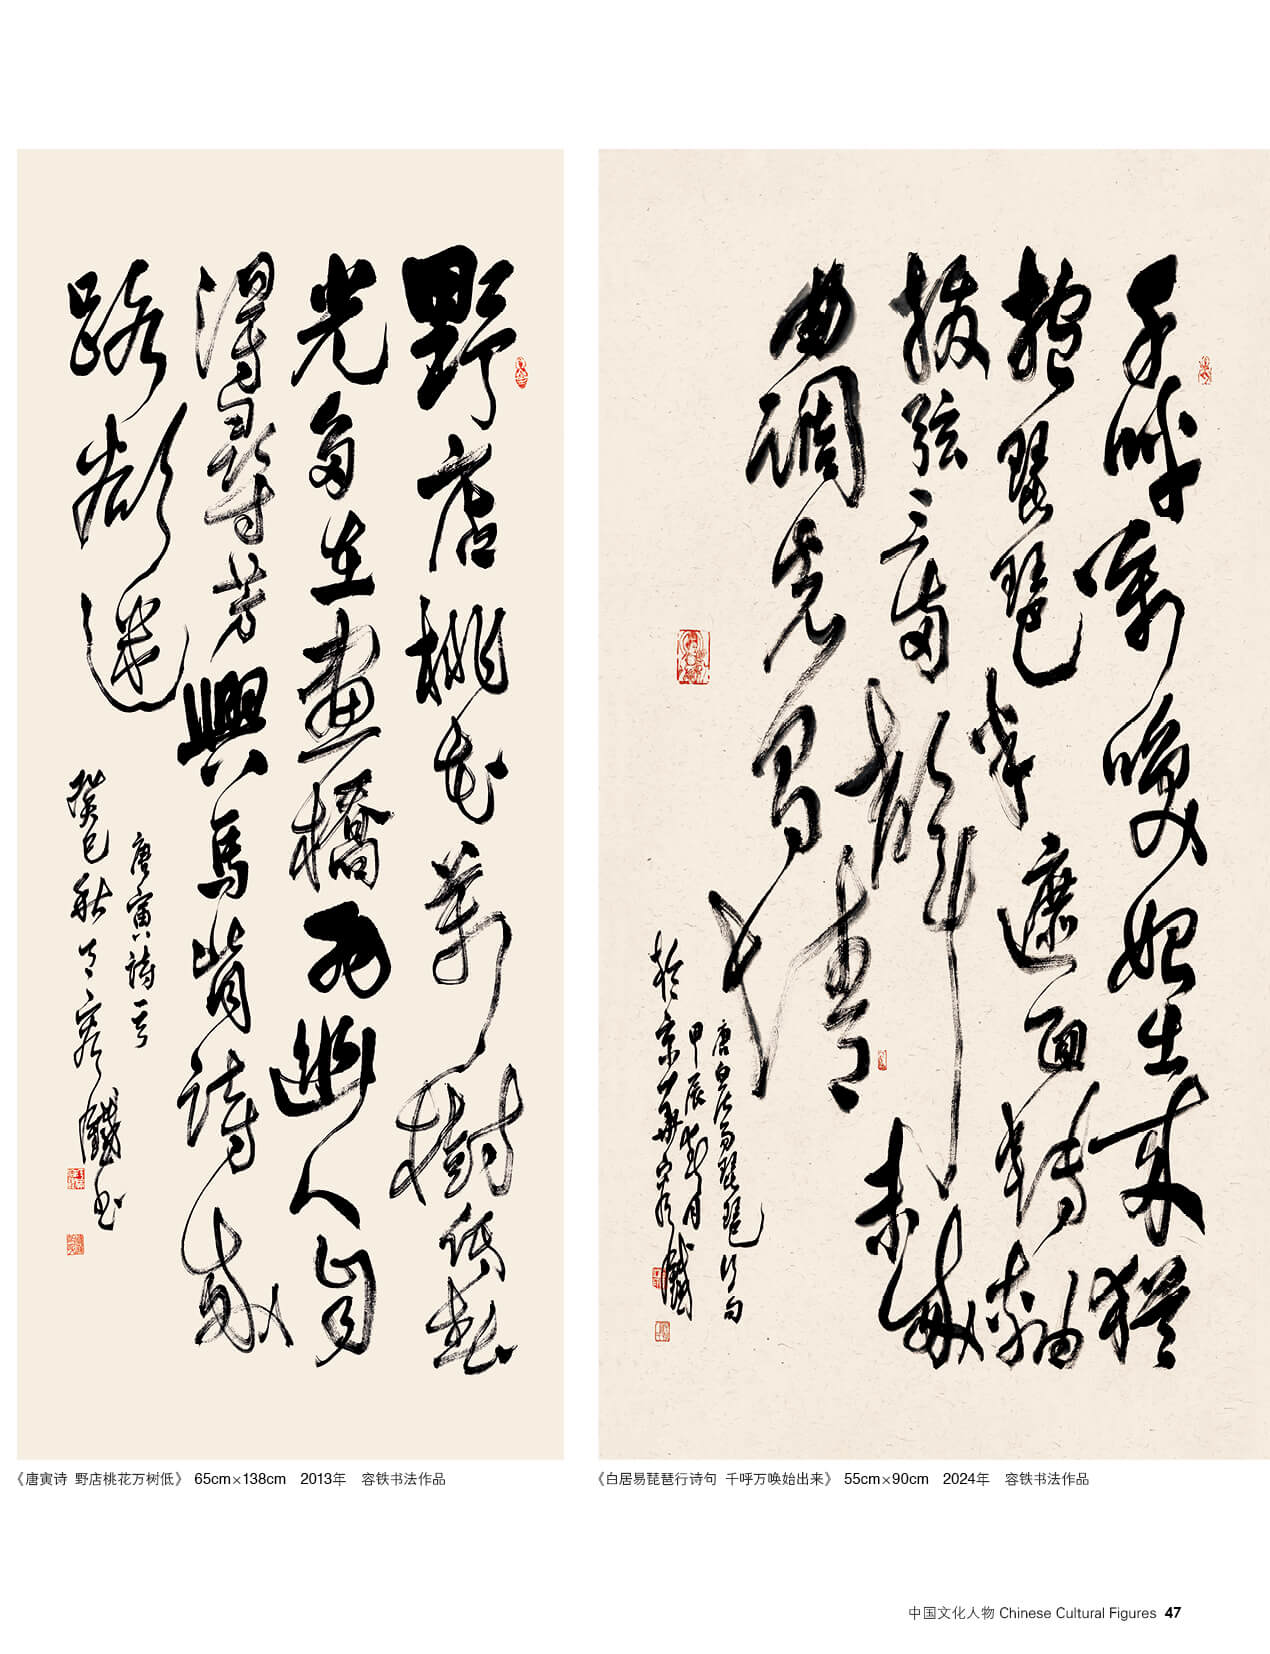 野店桃花萬樹低春
光多在畫橋西幽人自
得尋芳興馬背詩成
路欲迷
唐寅詩一首
癸巳秋 容鐵书
《唐寅诗 野店桃花万树低》 65cm×138cm 2013年 容铁书法作品
千呼萬喚始出来猶
抱琵琶半遮面轉軸
撥弦三兩聲未成
曲調先有情
唐白居易琵琶行句
甲辰 月
於京華容鐵
《白居易琵琶行诗句 千呼万唤始出来》 55cm×90cm 2024年 容铁书法作品
中国文化人物 Chinese Cultural Figures 47